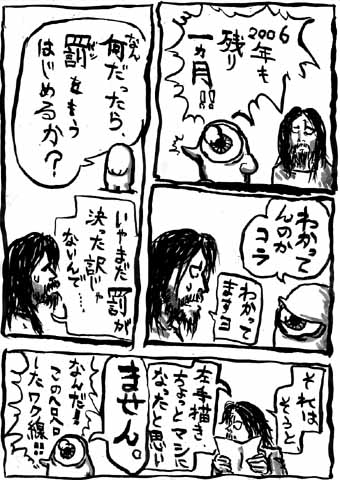 2006
年も
残り
一ヵ月!!
わかって
んのか
コラ
わかって
ますヨ
何だったら、
罰をもう
はじめるか?
いやまだ罰が
決った訳じゃ
ないんで……
それは
そうと
左手描き、
ちょっとマシに
なったと思い
ません。
なんだ!!
このヘロヘロ
したワク線!!